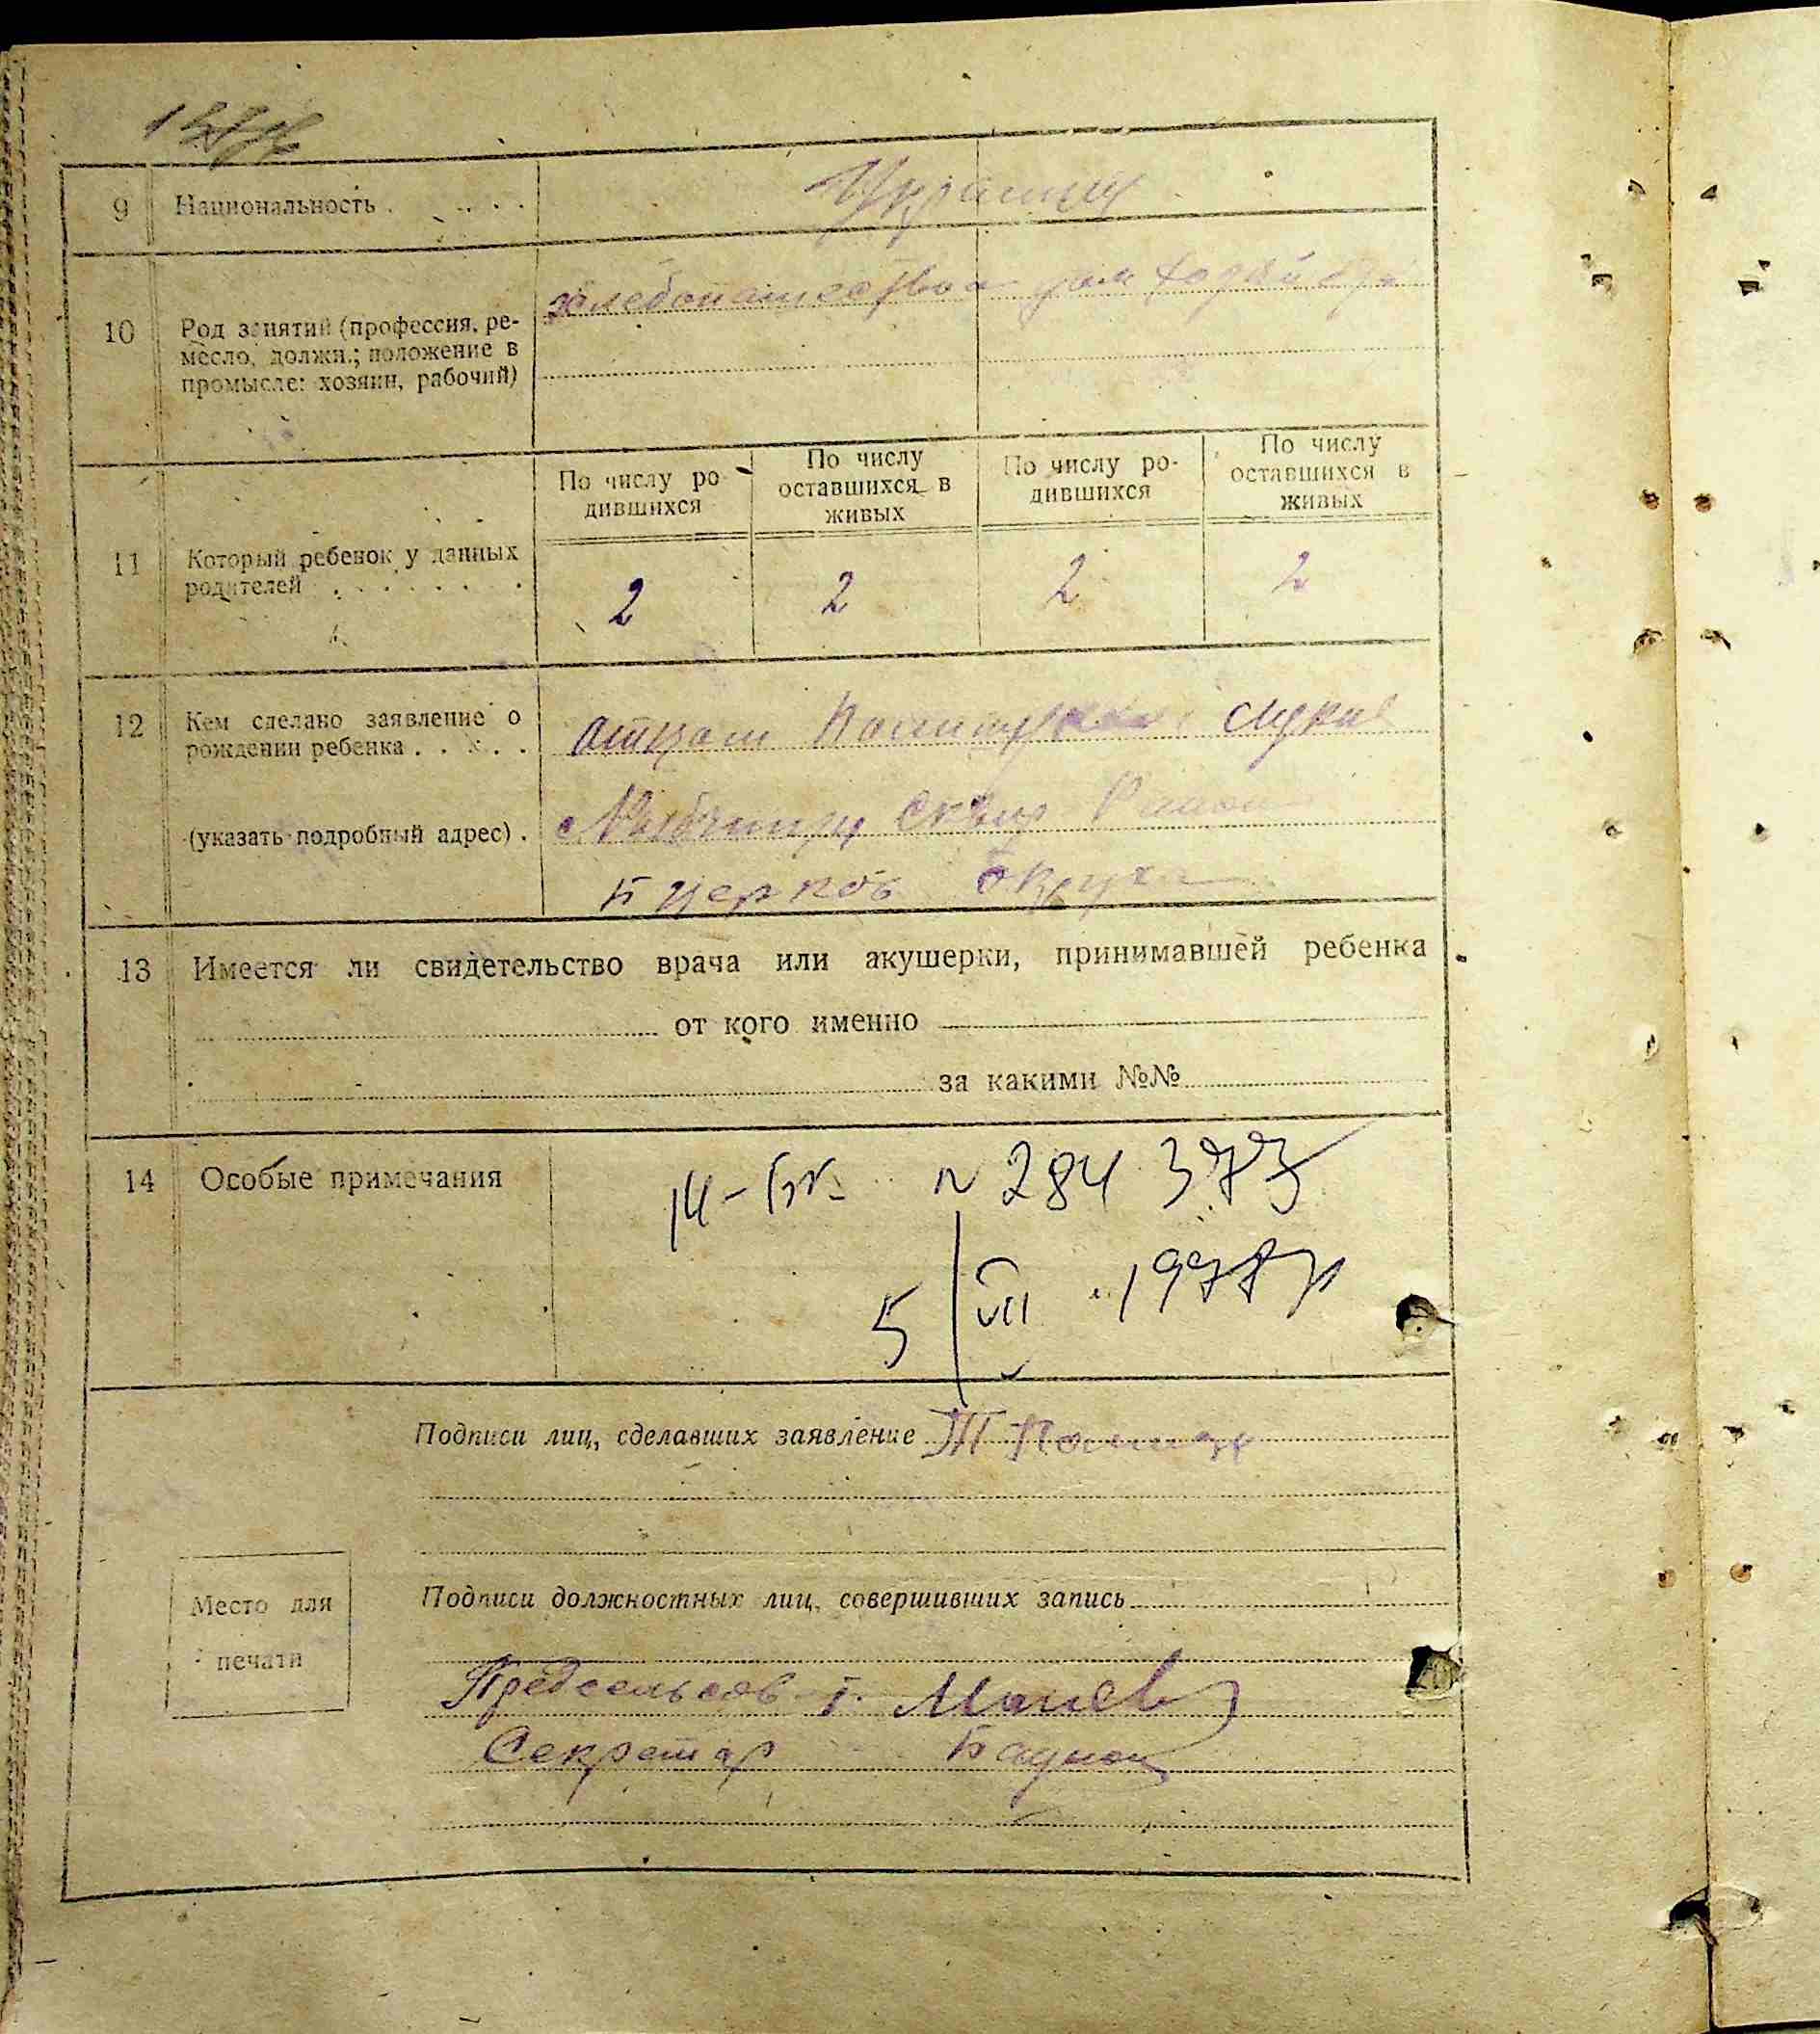 9 Национальность . . . . . Украинц
10 Род занятий (профессия, ре-
месло, должн.; положение в
промысле: хозяин, рабочий)
хлебопашество дом
11 Который ребенок у данных
родителей . . . . . . .
По числу ро-
дившихся
По числу
оставшихся в
живых
По числу ро-
дившихся
По числу
оставшихся в
живых
2 2 2 2
12 Кем сделано заявление о
рождении ребенка . . . . .
отцом
(указать подробный адрес) .
Сквир Район
Б Церков Округи
13 Имеется ли свидетельство врача или акушерки, принимавшей ребенка
от кого именно
за какими №№
14 Особые примечания
N 284 373
5/VII 1977р
Подписи лиц, сделавших заявление
Место для
печати
Подписи должностных лиц, совершивших запись
Предсельсов
Секретар